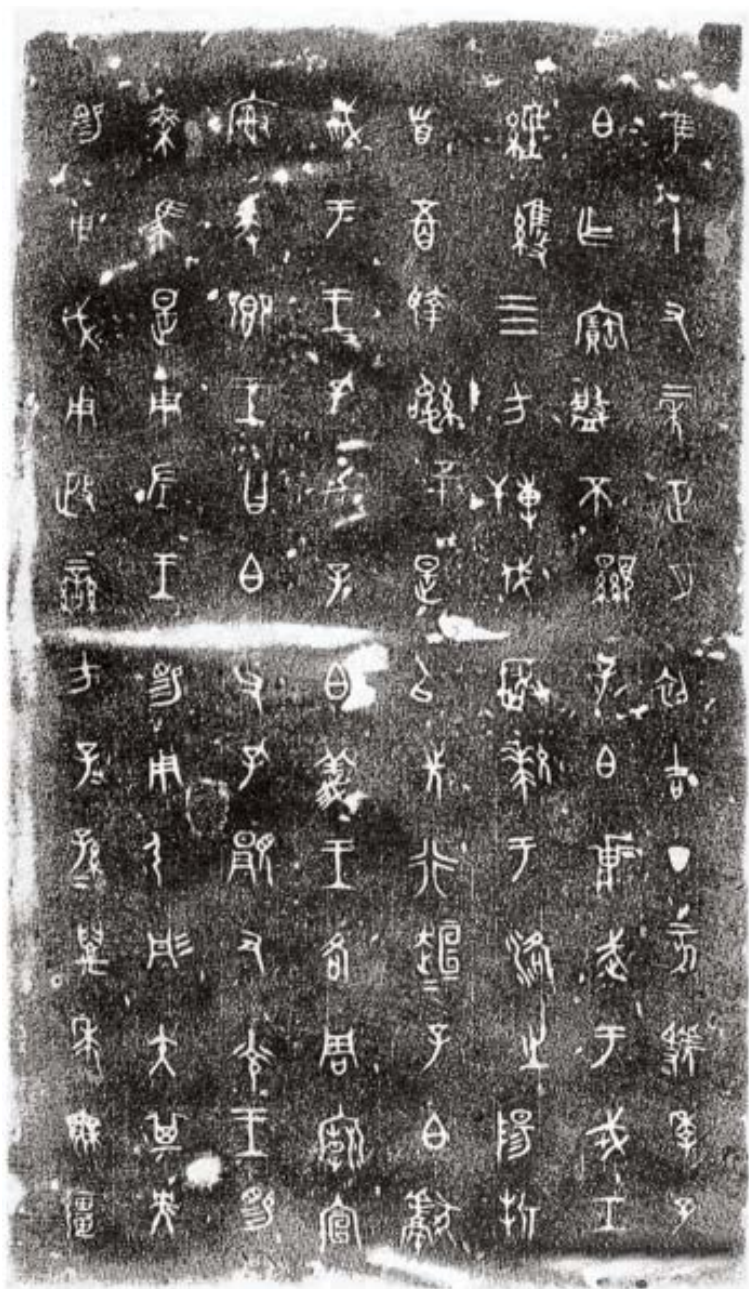 隹十又二年正月初吉丁亥虢季子
白乍寶盤不顯子白壯武于戎工
經維四方搏伐玁狁于洛之陽折
首五百執訊五十是以先行桓桓子白獻
馘于王王孔加子白義王各周廟宣
榭爰卿王曰白父孔顯又光王賜
乘馬是用左王賜用弓彤矢其央
賜用戉用政蠻方子子孫孫萬年無疆